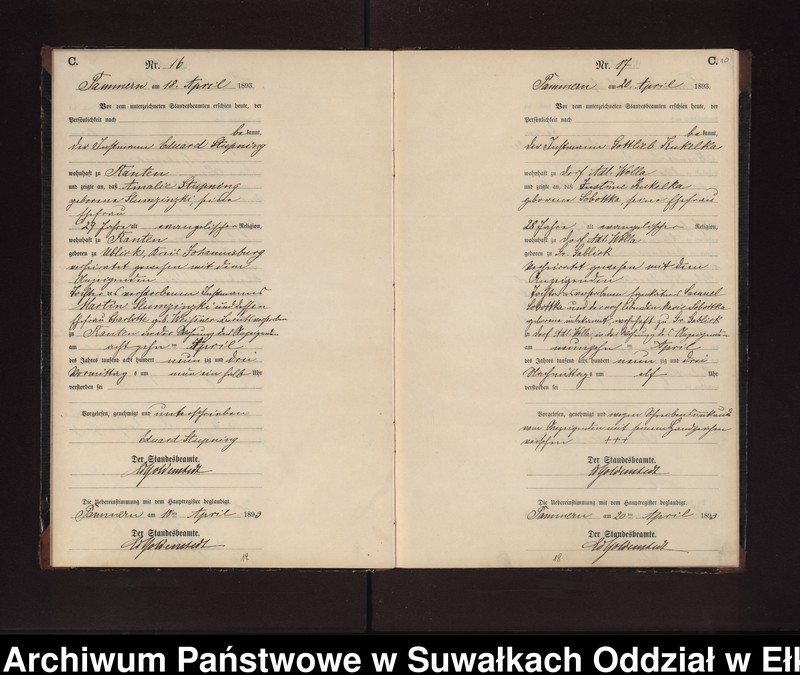 C.
Nr. 16
Pammern am 18. April 1893.
Vor dem unterzeichneten Standesbeamten erschien heute, der
Persönlichkeit nach
bekannt,
der Instmann Eduard
wohnhaft zu Kanten
und zeigte an, daß Amalie
geborene Slumzinski, seine
Ehefrau
29 Jahre alt evangelischer Religion,
wohnhaft zu Kanten
geboren zu Ublick, Kreis Johannisburg
verheiratet gewesen mit dem
Anzeigenden
Tochter des verstorbenen Instmannes
Martin Slumzinski und dessen
Ehefrau Charlotte geb.
zu Kanten in der Wohnung des Anzeigenden
am achtzehn ten April
des Jahres tausend acht hundert neunzig und drei
Vormittags um neun ein halb Uhr
verstorben sei
Vorgelesen, genehmigt und unterschrieben
Eduard
Der Standesbeamte.
Die Uebereinstimmung mit dem Hauptregister beglaubigt.
Pammern am 18ten April 1893
Der Standesbeamte.
Nr. 17
C.
Pammern am 20. April 1893.
Vor dem unterzeichneten Standesbeamten erschien heute, der
Persönlichkeit nach
bekannt,
der Instmann Gottlieb Kukelka
wohnhaft zu Dorf Adl. Wolla
und zeigte an, daß Justine Kukelka
geborene Sobottka, seine Ehefrau
28 Jahre alt evangelischer Religion,
wohnhaft zu Dorf Adl. Wolla
geboren zu Gr. Gablick
verheiratet gewesen mit dem
Anzeigenden
Tochter des verstorbenen Samuel
Sobottka und der noch lebenden Marie Sobottka
geborene unbekannt, wohnhaft zu Gr. Gablick
zu Dorf Adl. Wolla, in der Wohnung des Anzeigenden
am neunzehn ten April
des Jahres tausend acht hundert neunzig und drei
Nachmittags um elf Uhr
verstorben sei
Vorgelesen, genehmigt und wegen Schreibensunkunde
vom Anzeigenden mit seinem Handzeichen
versehen +++
Der Standesbeamte.
Die Uebereinstimmung mit dem Hauptregister beglaubigt.
Pammern am 20ten April 1893
Der Standesbeamte.
Archiwum Państwowe w Suwałkach Oddział w Ełk